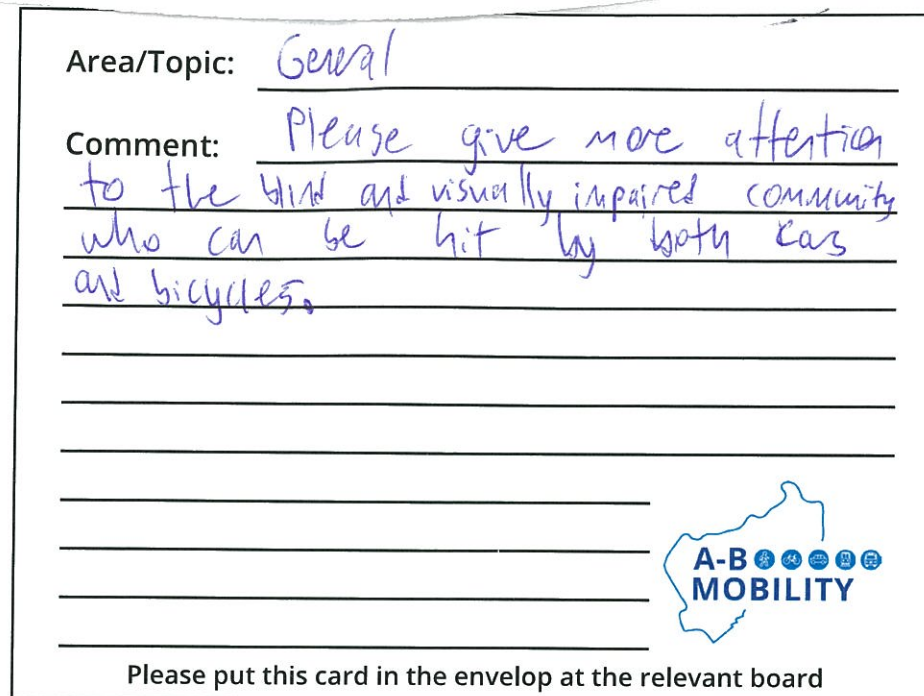 Area/Topic: General
Comment: Please give more attention
to the blind and visually impaired community
who can be hit by both cars
and bicycles.
A-B
MOBILITY
Please put this card in the envelop at the relevant board